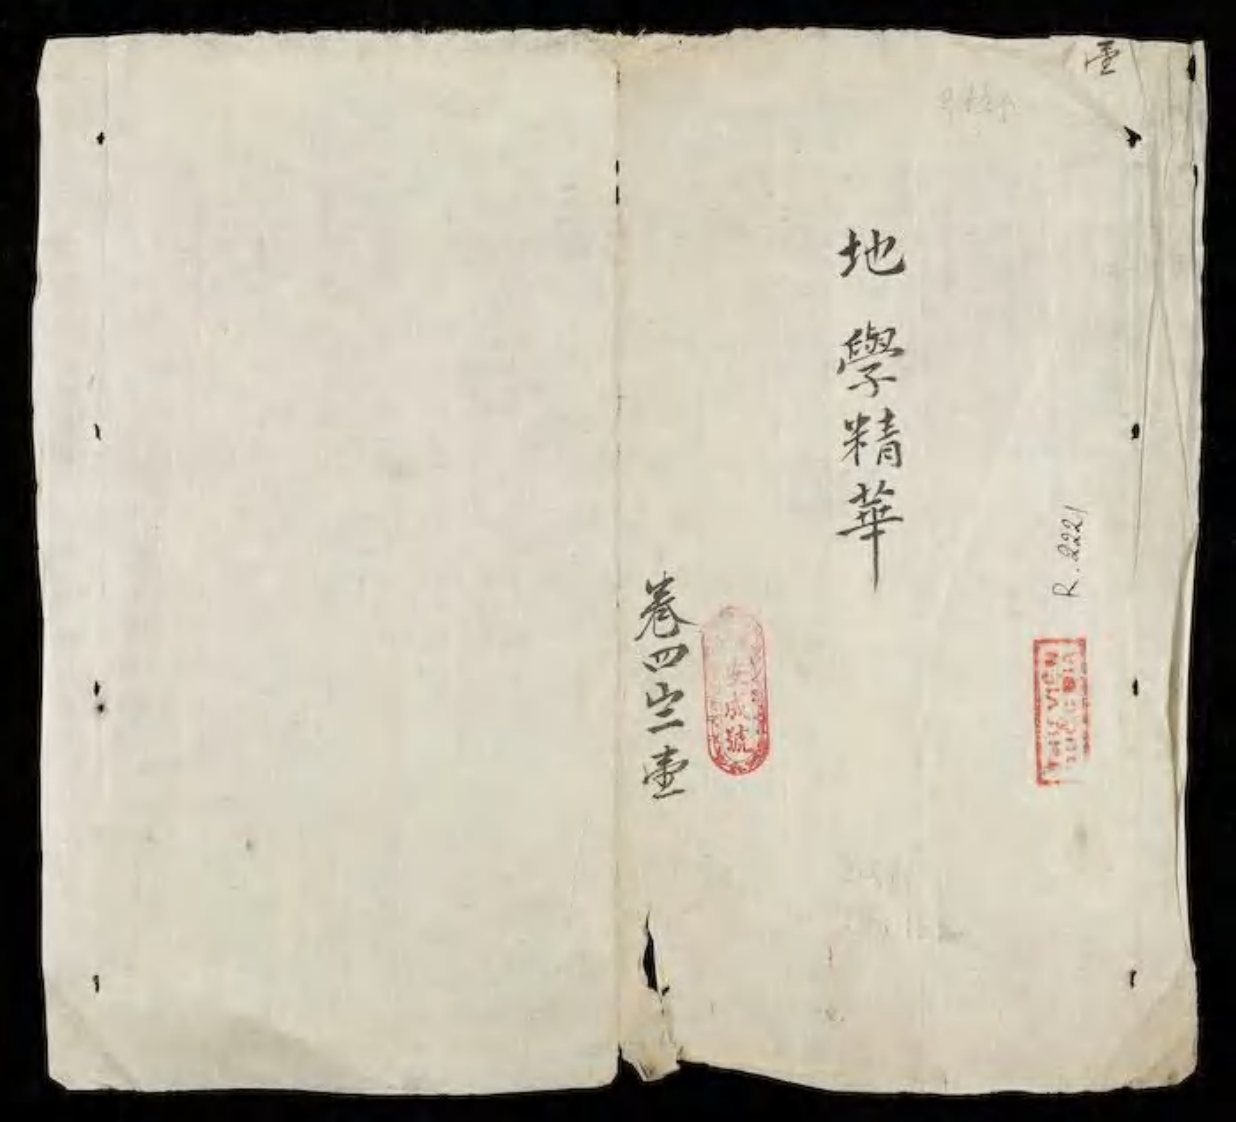 壹
地學精華
卷四之壹
安成號
R. 2221
THƯ VIỆN
QUỐC GIA